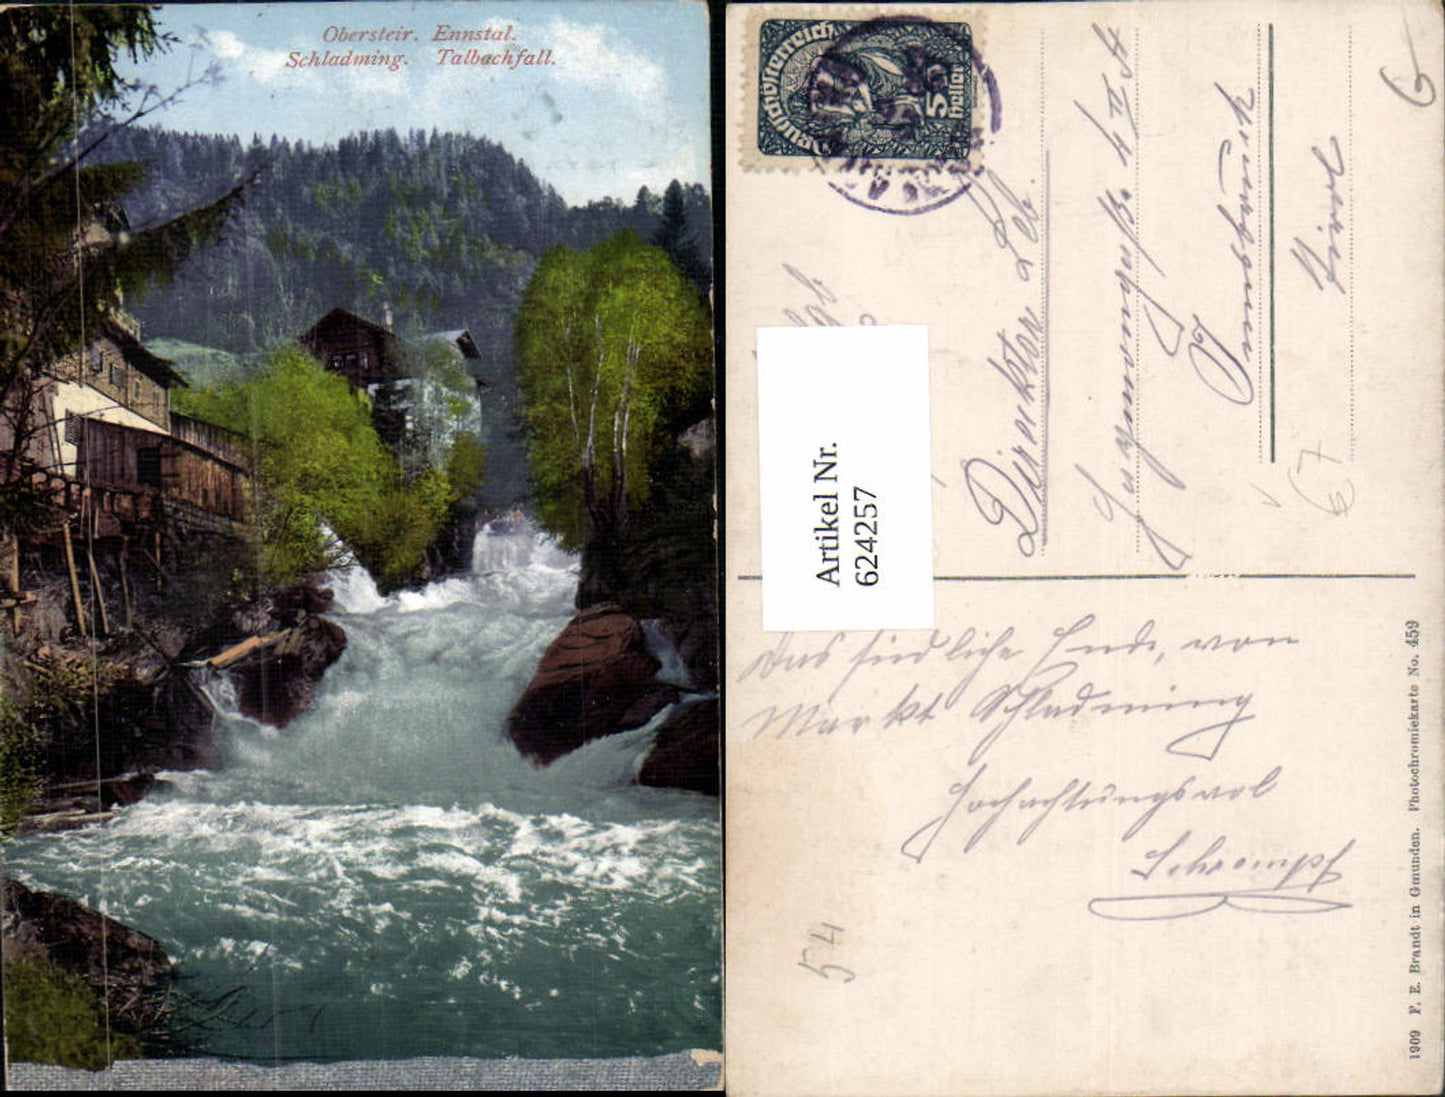 Obersteir. Ennstal.
Schladming. Talbachfall.
Deutschösterreich
5
heller
Artikel Nr.
624257
Direktor Leb.
4 II 4
Innsbruck
Tirol
6
67
Das südliche Ende, von
Markt Schladming
Hochachtungsvol
Schrempf
54
1909 F. E. Brandt in Gmunden. Photochromiekarte No. 459